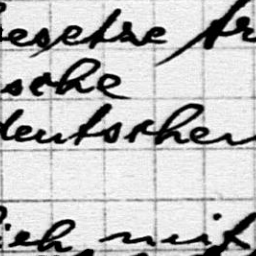 esetze
sche
deutschen
ich mit